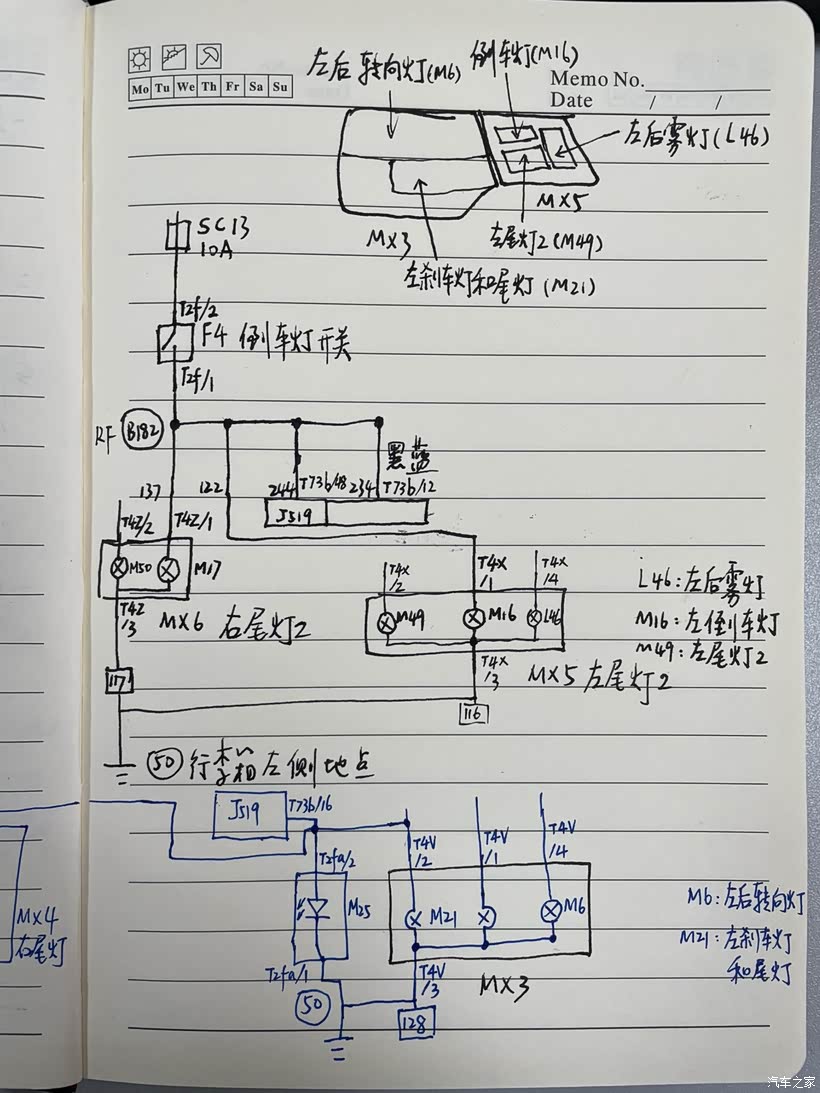 Mo Tu We Th Fr Sa Su
Memo No.
Date / /
左后转向灯(M6)
倒车灯(M16)
左后雾灯(L46)
MX5
MX3
左尾灯2(M49)
左刹车灯和尾灯(M21)
SC13
10A
T2f/2
F4 倒车灯开关
T2f/1
RF B182
黑蓝
137
122
244 T73b/48 234 T73b/12
J519
T4Z/2 T4Z/1
M50 M17
T4Z/3
MX6 右尾灯2
T4X/2
T4X/1
T4X/4
M49 M16 L46
T4X/3
MX5 左尾灯2
L46:左后雾灯
M16:左倒车灯
M49:左尾灯2
117
116
50 行李箱左侧地点
J519 T73b/16
T2fa/2
T4V/2
T4V/1
T4V/4
M25
M21 M6
M6:左后转向灯
M21:左刹车灯
和尾灯
MX4
右尾灯
T2fa/1
T4V/3
MX3
50
128
汽车之家